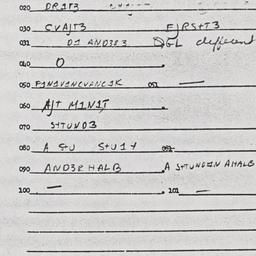 020 DRIT3
030 CVAJT3 FJRSTT3
031 DI AND3R3 DEL different
040 O
050 FINIVINCVANCIK 051 —
060 AJT MINIT
070 STTUND3
080 A STU STUIY
090 AND3R HALB A STTUNDIN AHALB
100 — 101 —